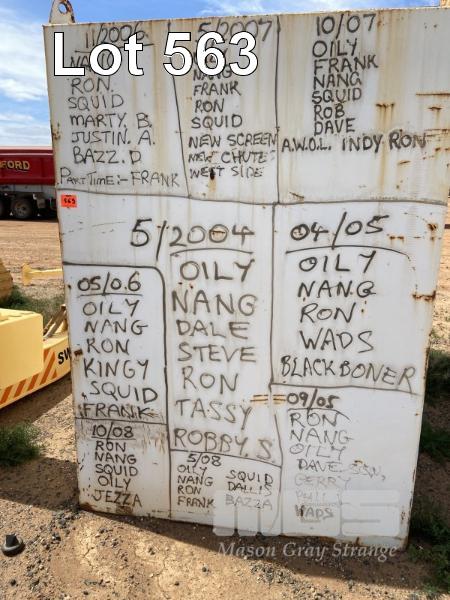 Lot 563
11/2006
NANG
RON
SQUID
MARTY. B
JUSTIN. A.
BAZZ. D
PART TIME:- FRANK
5/2007
NANG
FRANK
RON
SQUID
NEW SCREEN
NEW CHUTE
WEST SIDE
10/07
OILY
FRANK
NANG
SQUID
ROB
DAVE
A.W.O.L. INDY RON
563
FORD
5/2004
OILY
NANG
DALE
STEVE
RON
TASSY
ROBBY. S.
04/05
OILY
NANG
RON
WADS
BLACKBONER
05/0.6
OILY
NANG
RON
KINGY
SQUID
FRANK
09/05
RON
NANG
OILY
DAVE
GERRY
WADS
10/08
RON
NANG
SQUID
OILY
JEZZA
5/08
OILY SQUID
NANG DALLIS
RON BAZZA
FRANK
SW
MGS
Mason Gray Strange